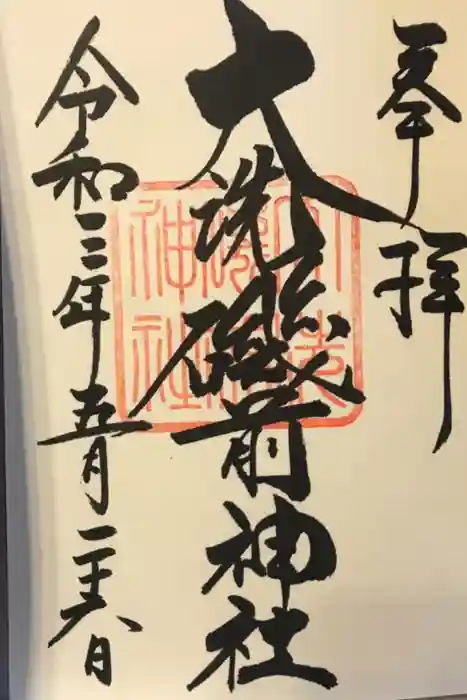 奉拝
大洗磯前神社
令和三年五月二十八日
大洗磯前神社